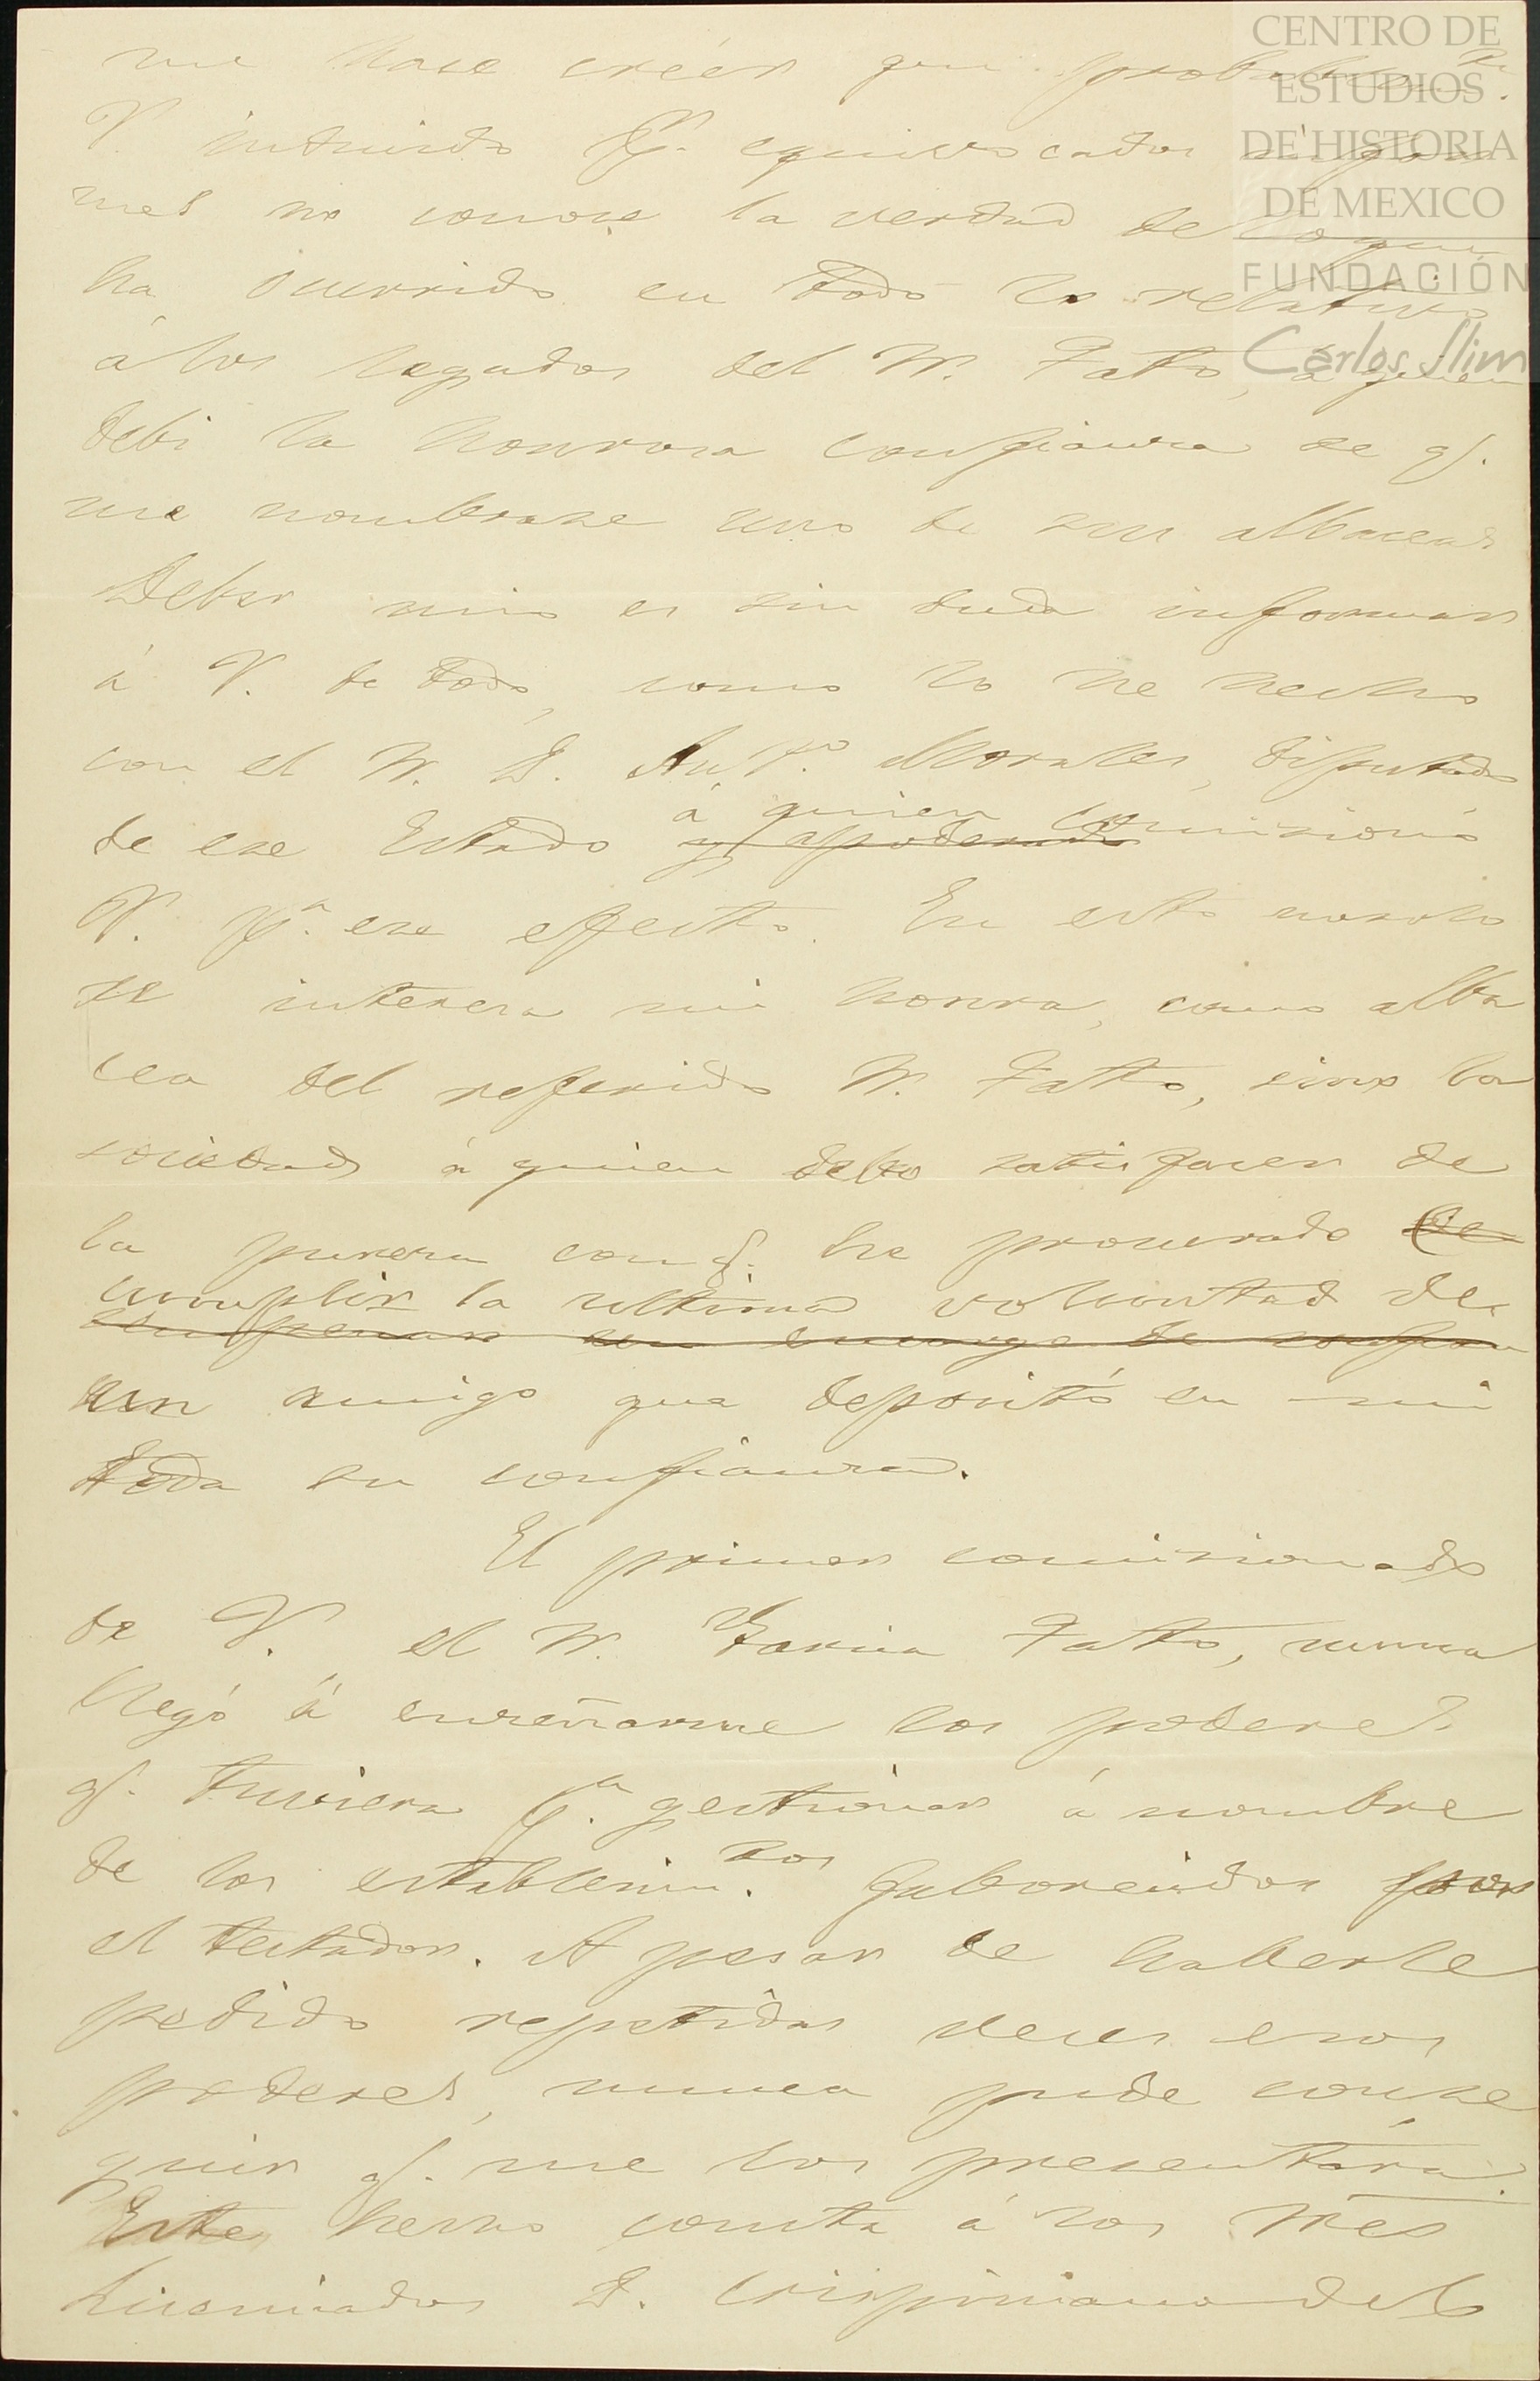 CENTRO DE
ESTUDIOS
DE HISTORIA
DE MEXICO
FUNDACIÓN
Carlos Slim
me hace creér que
V. instruido pr. equivocados
mes no conoce la verdad de lo que
ha ocurrido en todo lo relativo
á los legados del Sr. Fatto, á quien
debi la honrosa confianza de q.
me nombrase uno de sus albaceas
Deber mio es sin duda informar
á V. de todo, como lo he hecho
con el Sr. D. Anto. Morales, diputado
á quien comisionó
de ese Estado y apoderado
V. pa. ese efecto. En esto no solo
se interesa mi honra, como alba
cea del referido Sr. Fatto, sino la
sociedad á quien debo satisfacer de
la pureza con q. he procurado de
cumplir la ultima voluntad de
sempeñar un encargo de confian
un amigo que depositó en mi
toda su confianza.
El primer comisionado
de V. el Sr. Garcia Fatto, nunca
llegó á enseñarme los poderes
q. tuviera pa. gestionar á nombre
de los establecim.tos faborecidos por
el testador. A pesar de haberle
pedido repetidas veces esos
poderes, nunca pude conse
guir q. me los presentára.
Este hecho consta á los Sres
Licenciados D. Crispiniano del